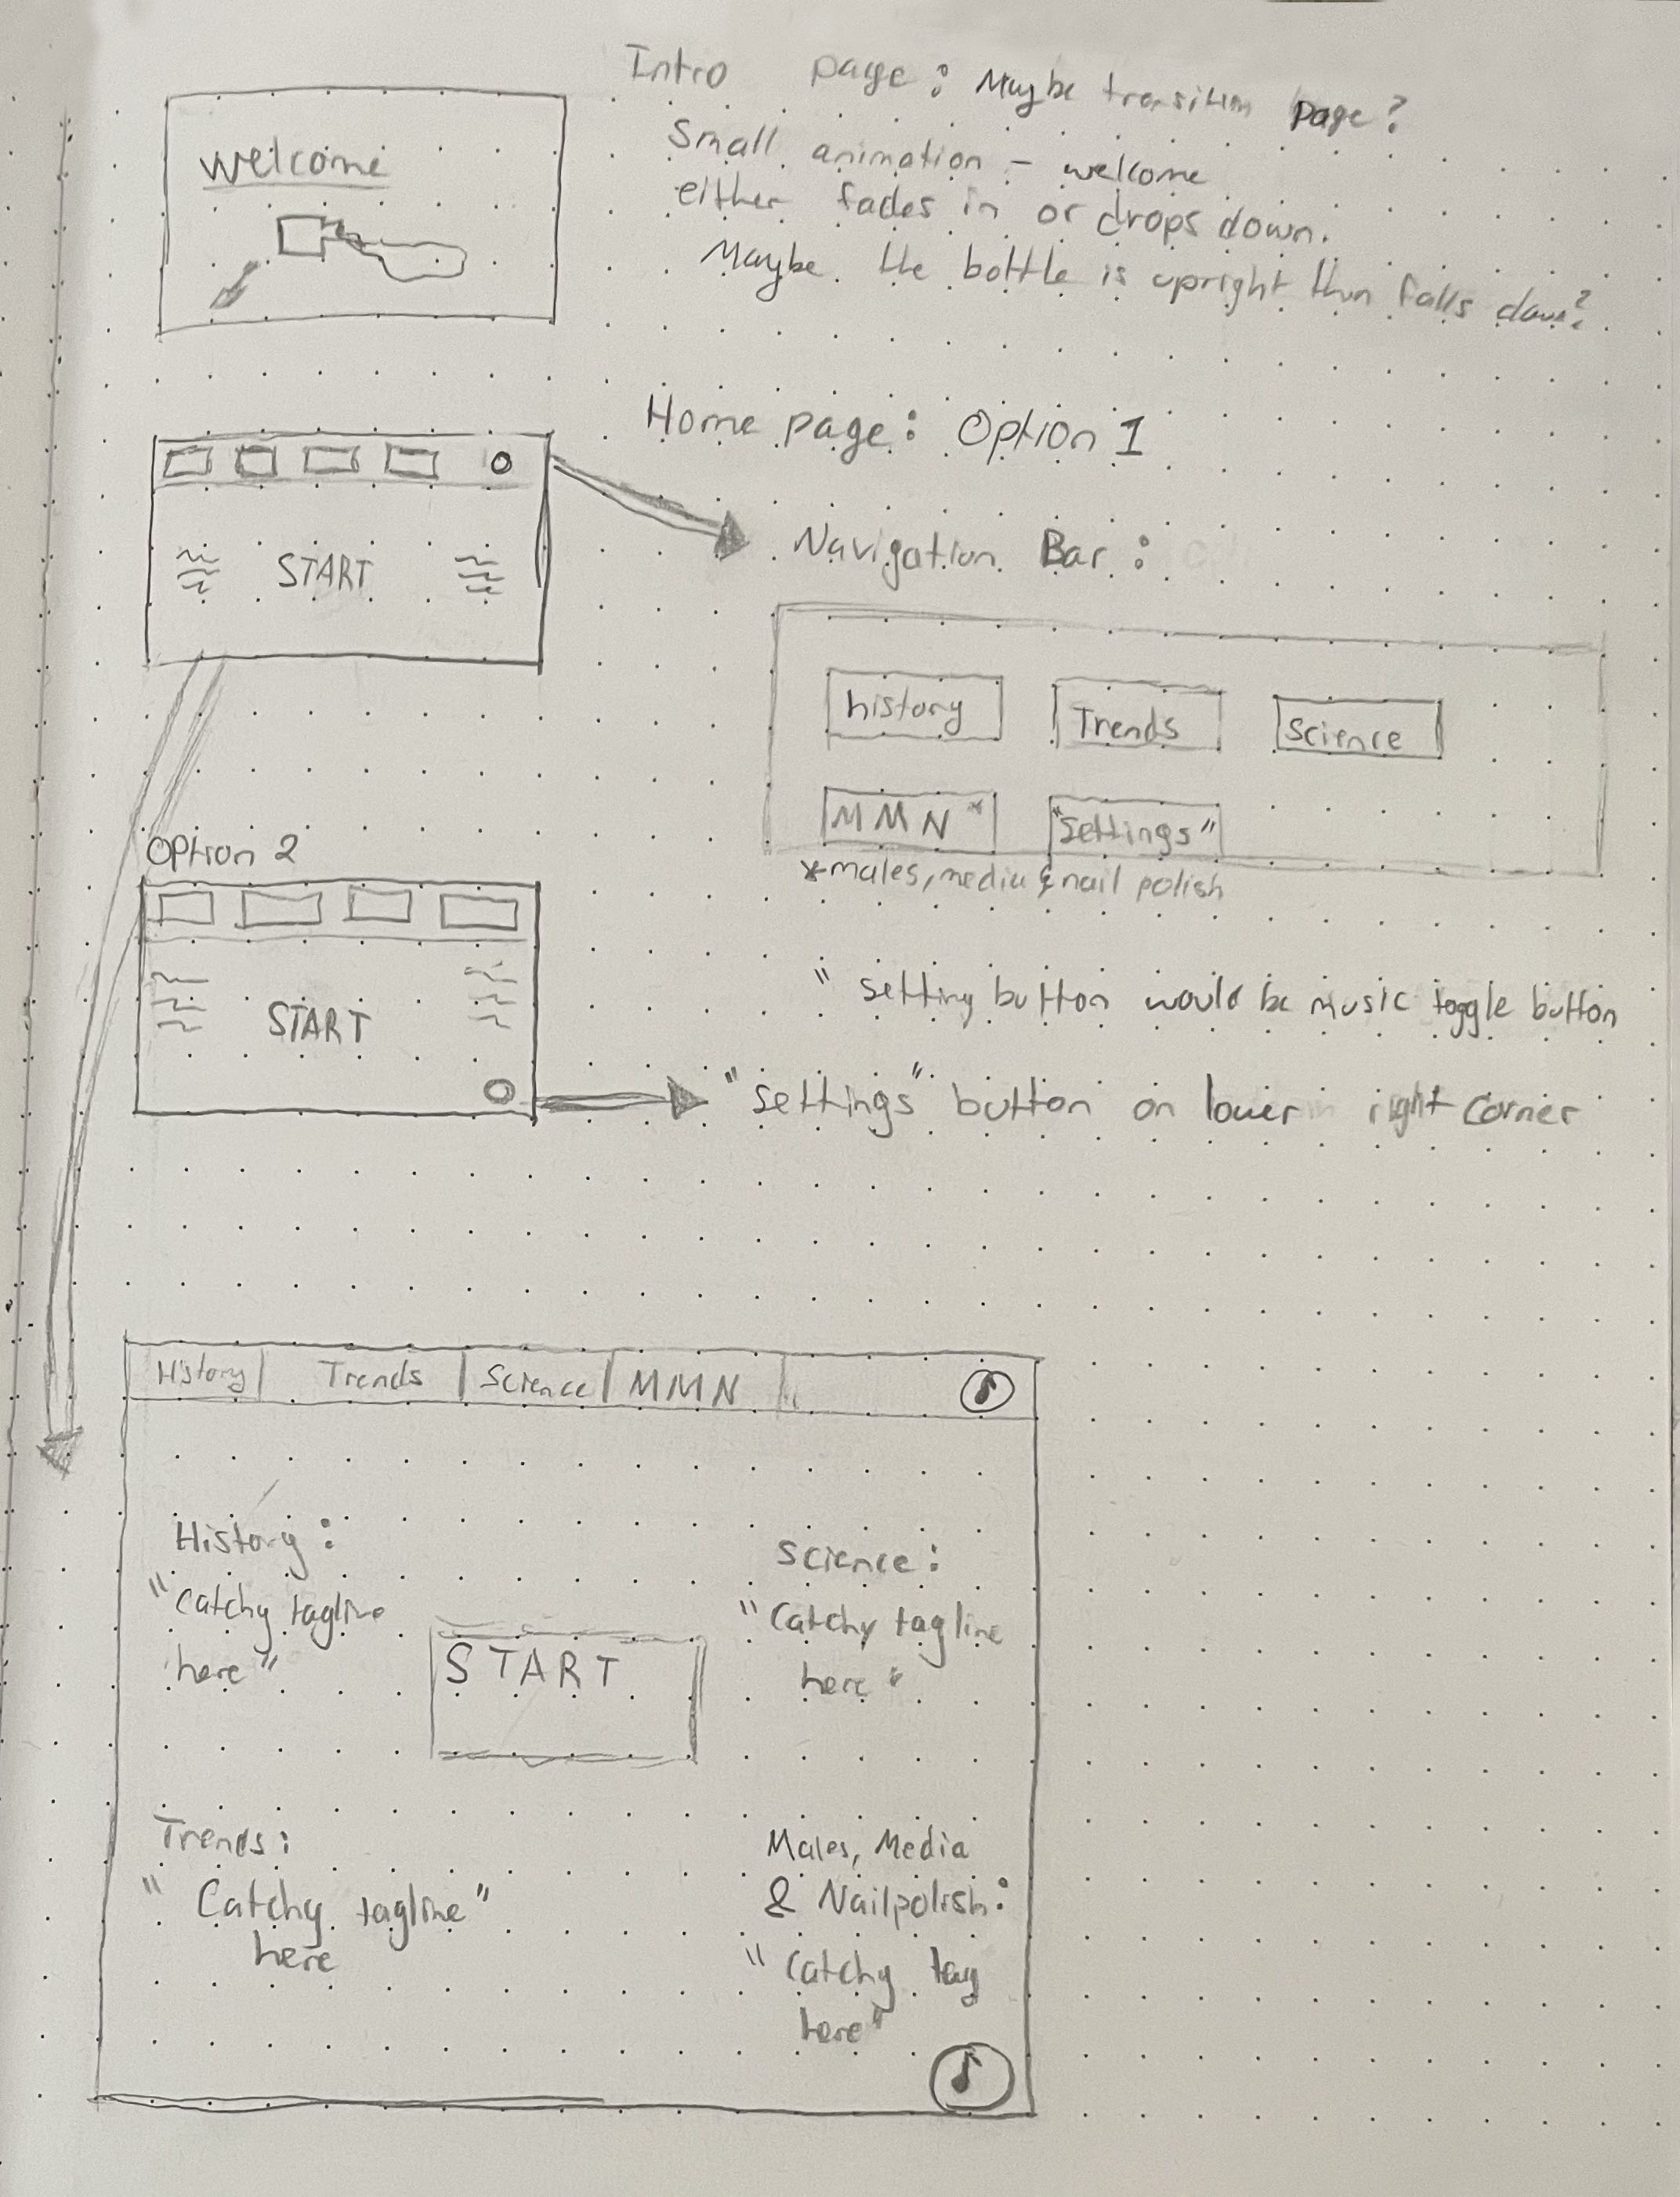 Intro page: Maybe transition page?
Small animation - welcome
either fades in or drops down.
Maybe the bottle is upright then falls down?
welcome
Home page: Option 1
START
Navigation Bar:
history Trends Science
MMN* "Settings"
*males, media & nail polish
Option 2
START
" setting button would be music toggle button
"Settings" button on lower right corner
History Trends Science MMN
History:
"Catchy tagline
here"
Science:
"Catchy tagline
here"
START
Trends:
"Catchy tagline"
here
Males, Media
& Nailpolish:
"Catchy tag
here"